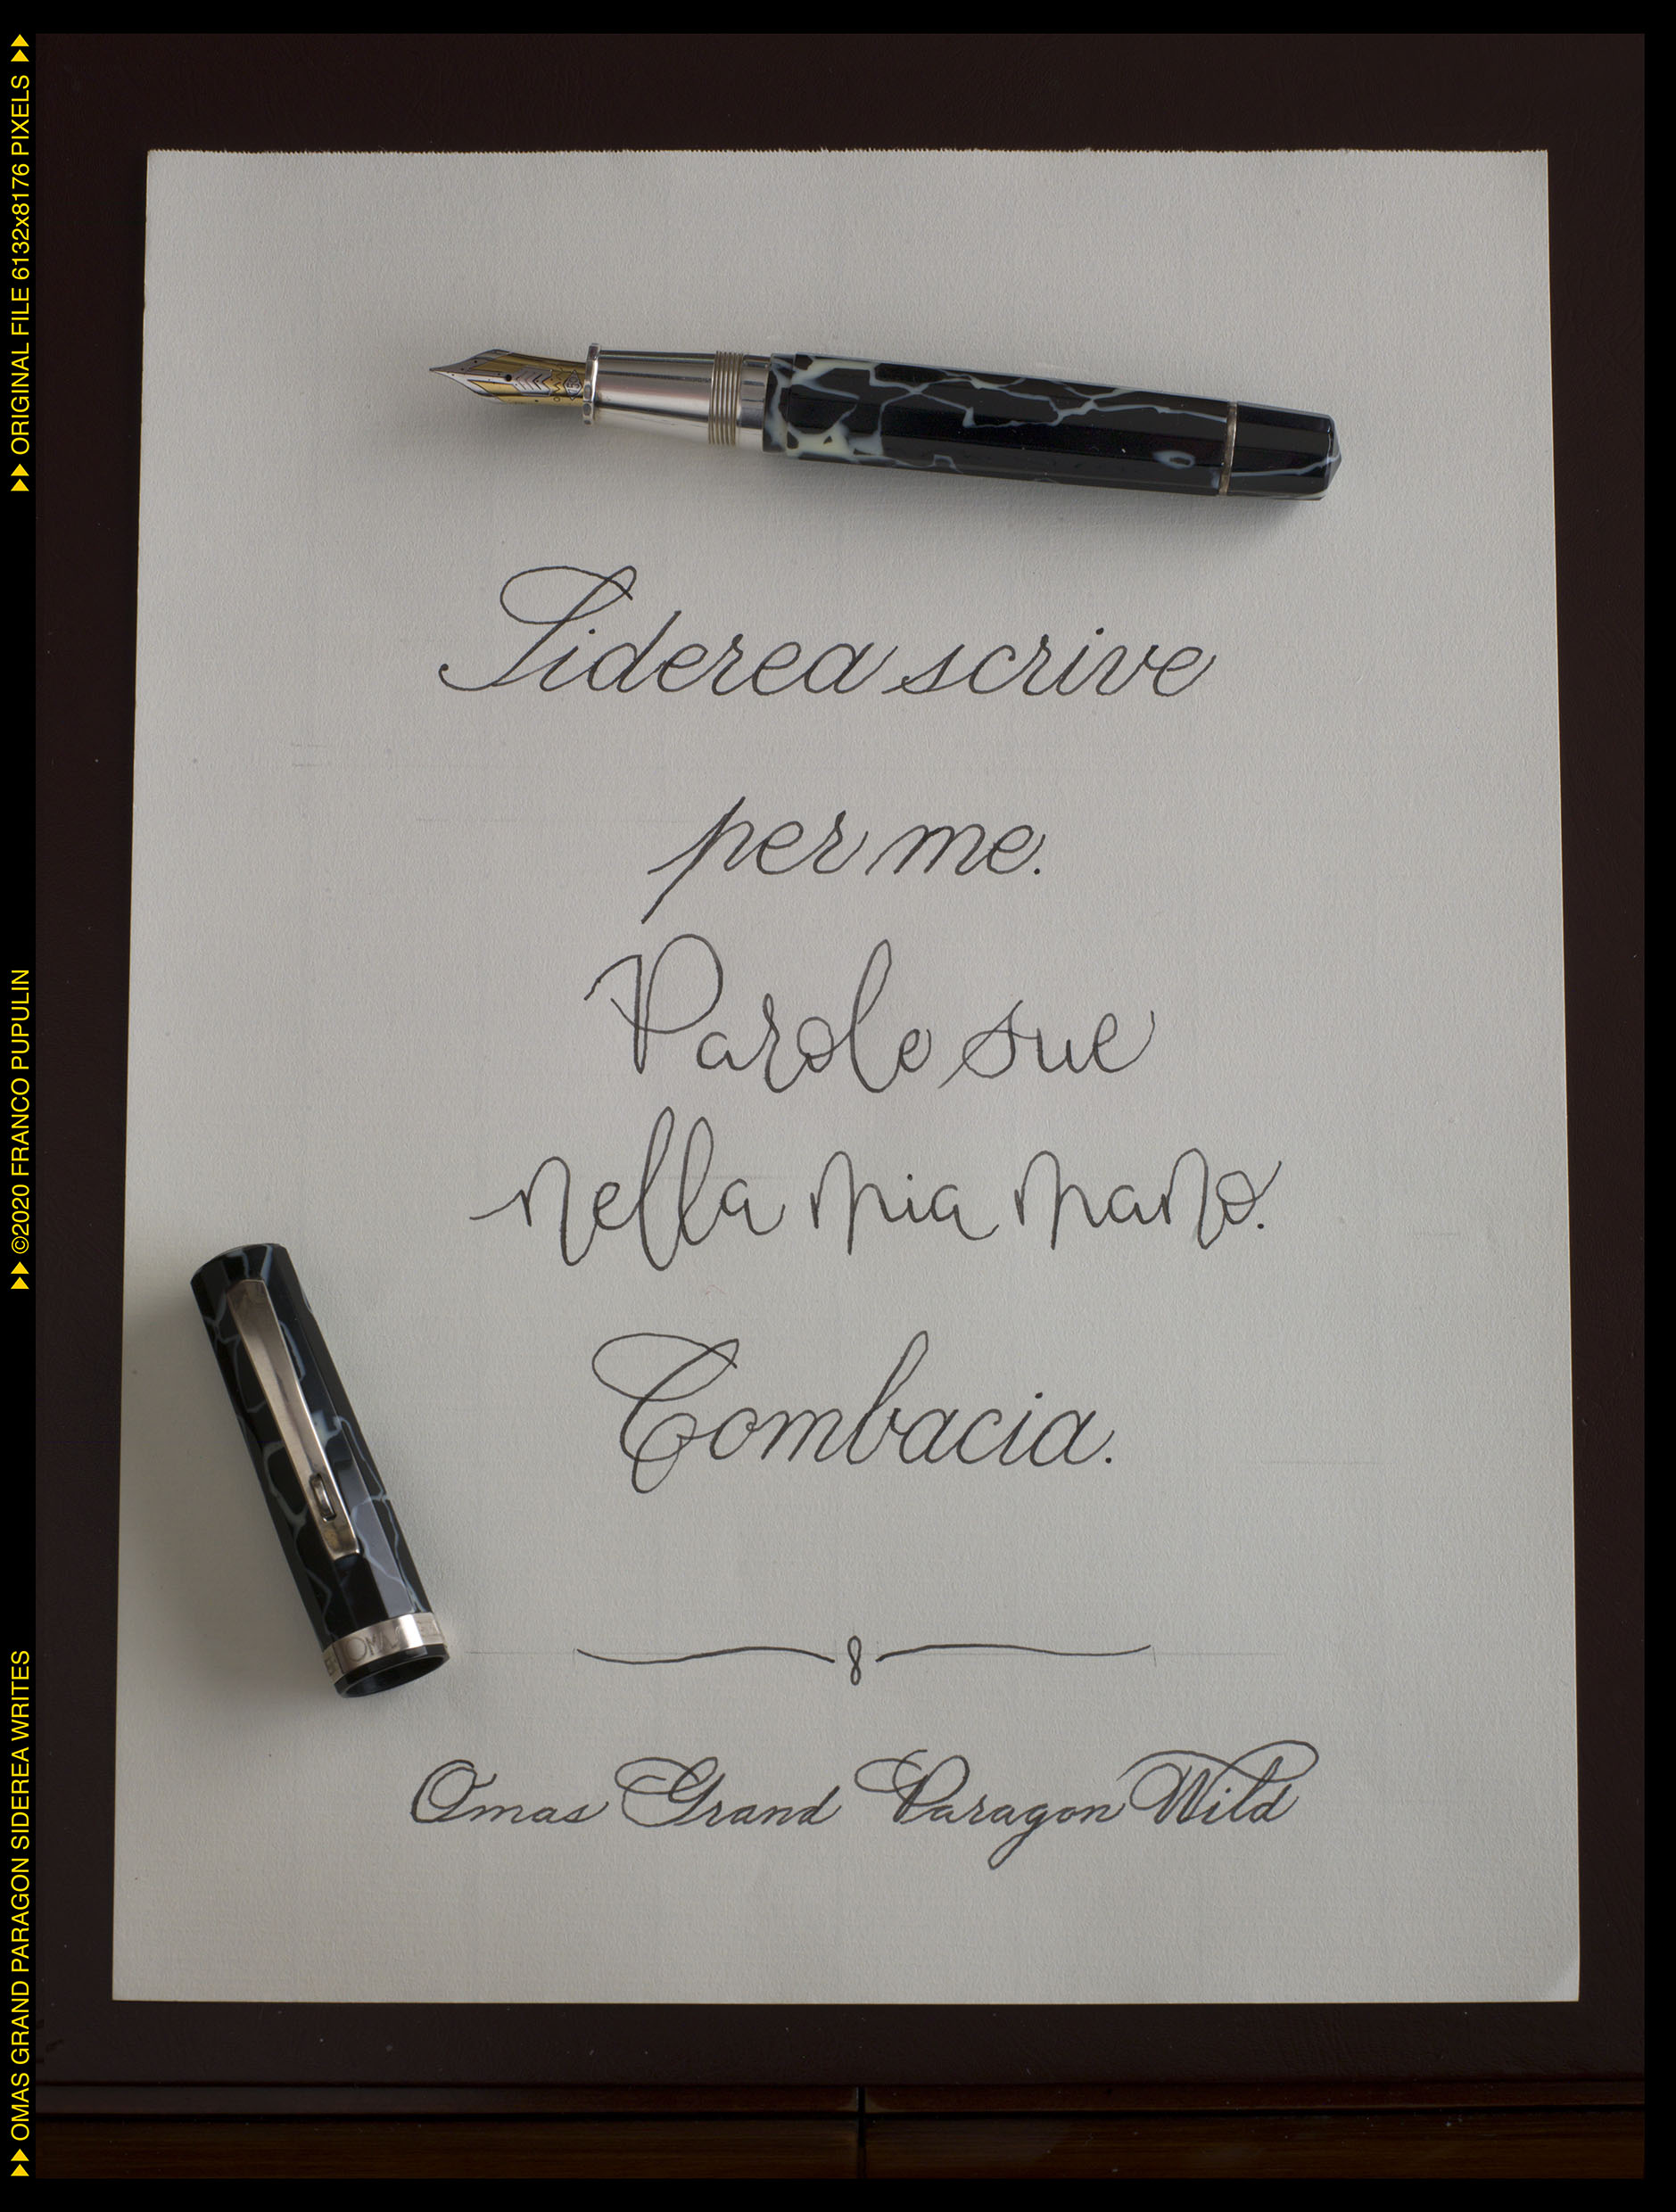 Siderea scrive
per me.
Parole sue
nella mia mano.
Combacia.
Omas Grand Paragon Wild
OMAS
ORIGINAL FILE 6132x8176 PIXELS
©2020 FRANCO PUPULIN
OMAS GRAND PARAGON SIDEREA WRITES